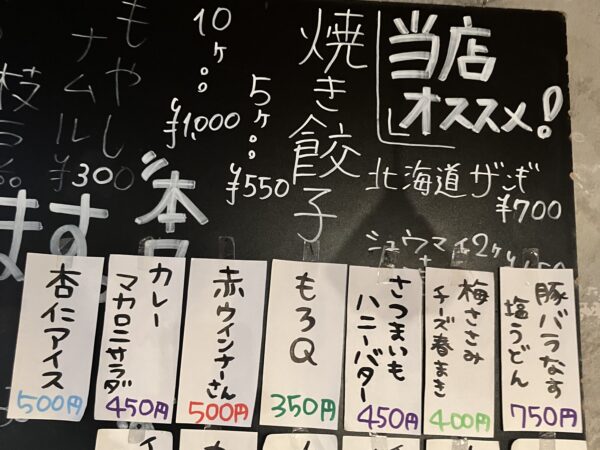 当店
オススメ!
北海道ザンギ
¥700
焼き餃子
5ヶ
¥550
10ヶ
¥1,000
もやし
ナムル
¥300
ます。
豚バラなす
塩うどん
750円
梅ささみ
チーズ春まき
400円
さつまいも
ハニーバター
450円
もろQ
350円
赤ウインナーさん
500円
カレー
マカロニサラダ
450円
杏仁アイス
500円